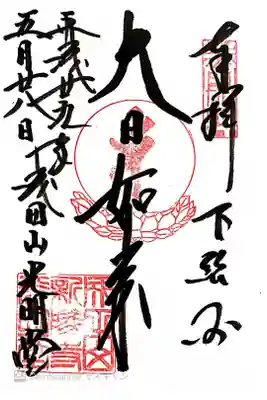 奉拝 下総国
大日如来
平成廿九年
五月廿八日
成田山光明堂